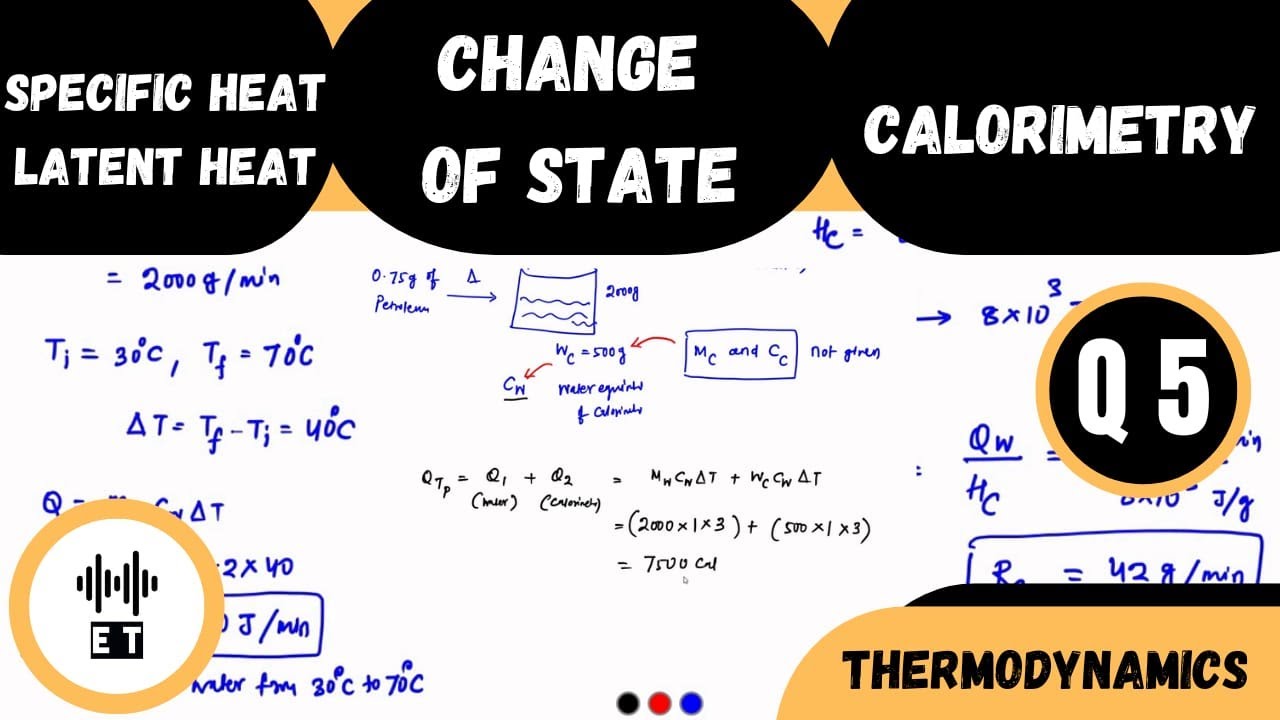 SPECIFIC HEAT
LATENT HEAT
CHANGE
OF STATE
CALORIMETRY
= 2000 g/min
Ti = 30°C, Tf = 70°C
ΔT = Tf - Ti = 40°C
Q =
ΔT
2 x 40
J/min
water from 30°C to 70°C
0.75g of
Petroleum
Δ
2000g
Wc = 500g
Mc and Cc not given
Cw
of
QTp = Q1 + Q2 = MwCwΔT + WcCwΔT
(water)
= (2000 x 1 x 3) + (500 x 1 x 3)
= 7500 Cal
Hc =
→ 8 x 10³
Q 5
: Qw
Hc
=
J/g
= 42 g/min
E T
THERMODYNAMICS